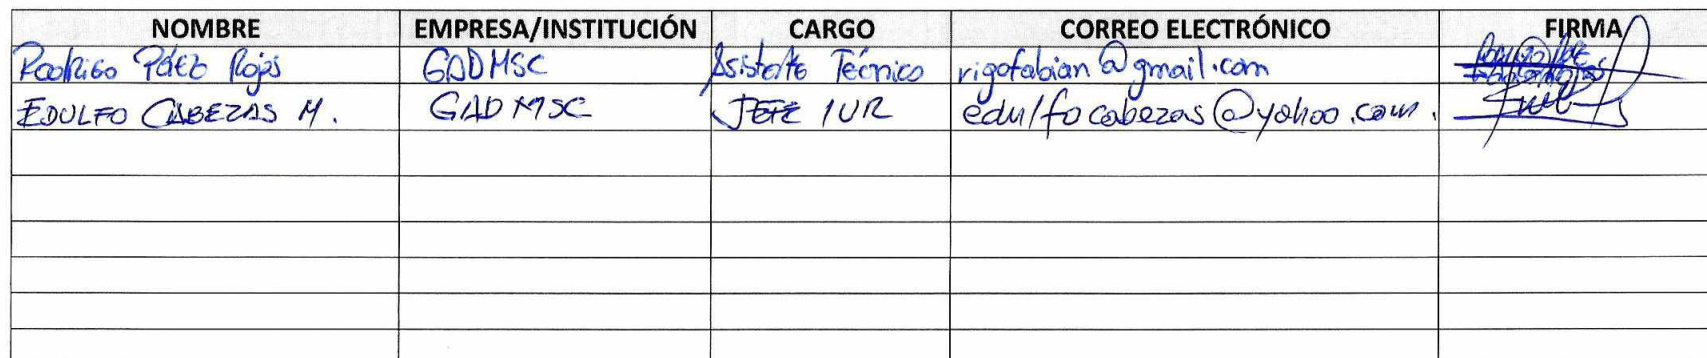 NOMBRE EMPRESA/INSTITUCIÓN CARGO CORREO ELECTRÓNICO FIRMA
Rodrigo Páez Rojas GADMSC Asistente Técnico rigofabian@gmail.com
EDULFO CABEZAS M. GADMSC JEFE IUR edulfocabezas@yahoo.com.